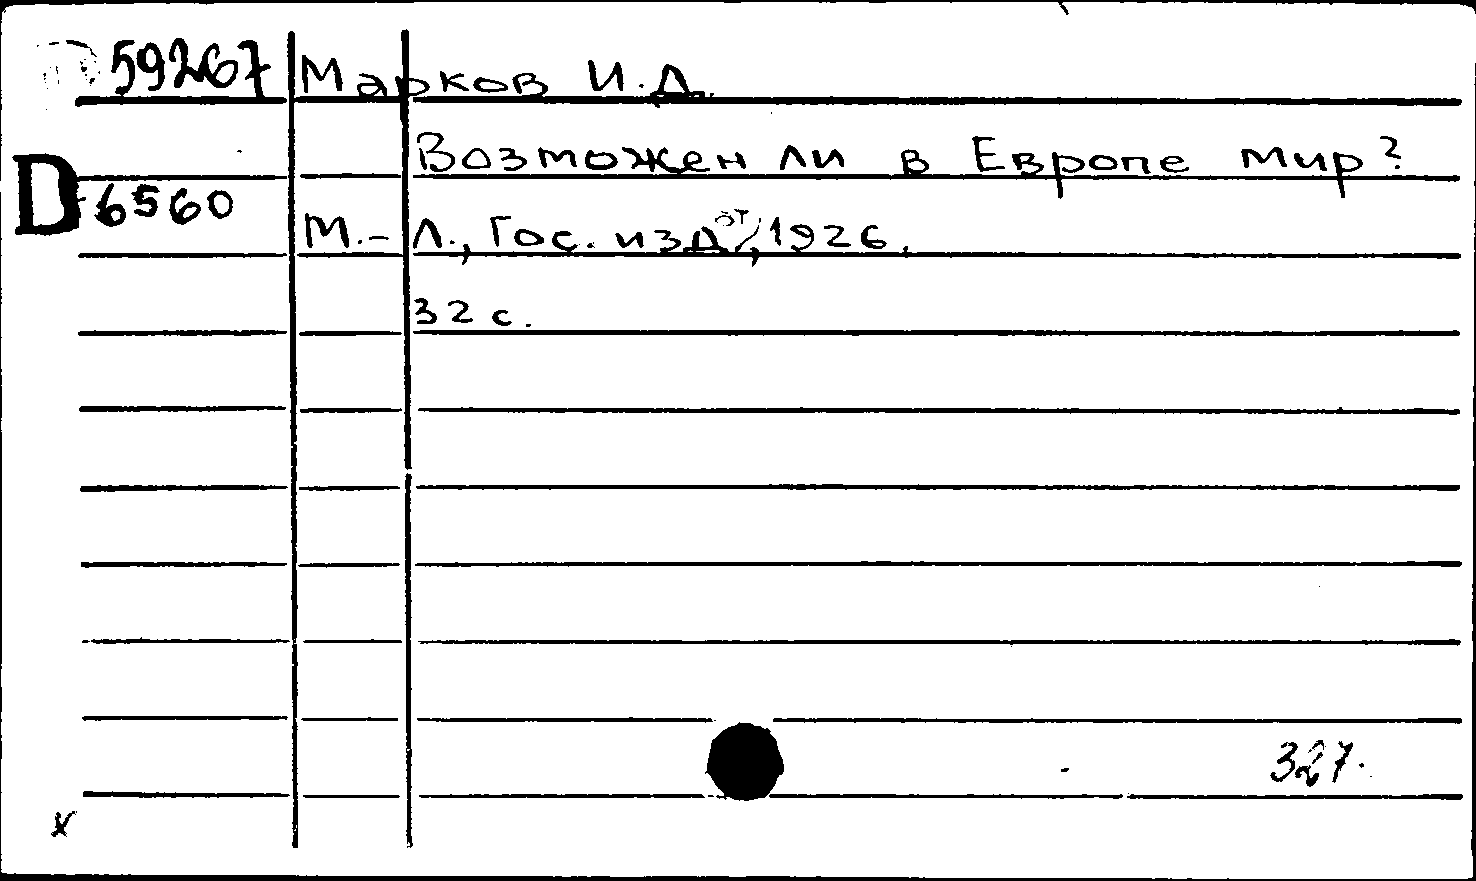 59267 Марков И.Д.
Возможен ли в Европе мир?
D 6560
М.-Л., Гос. изд, 1926.
32 с.
327.
x